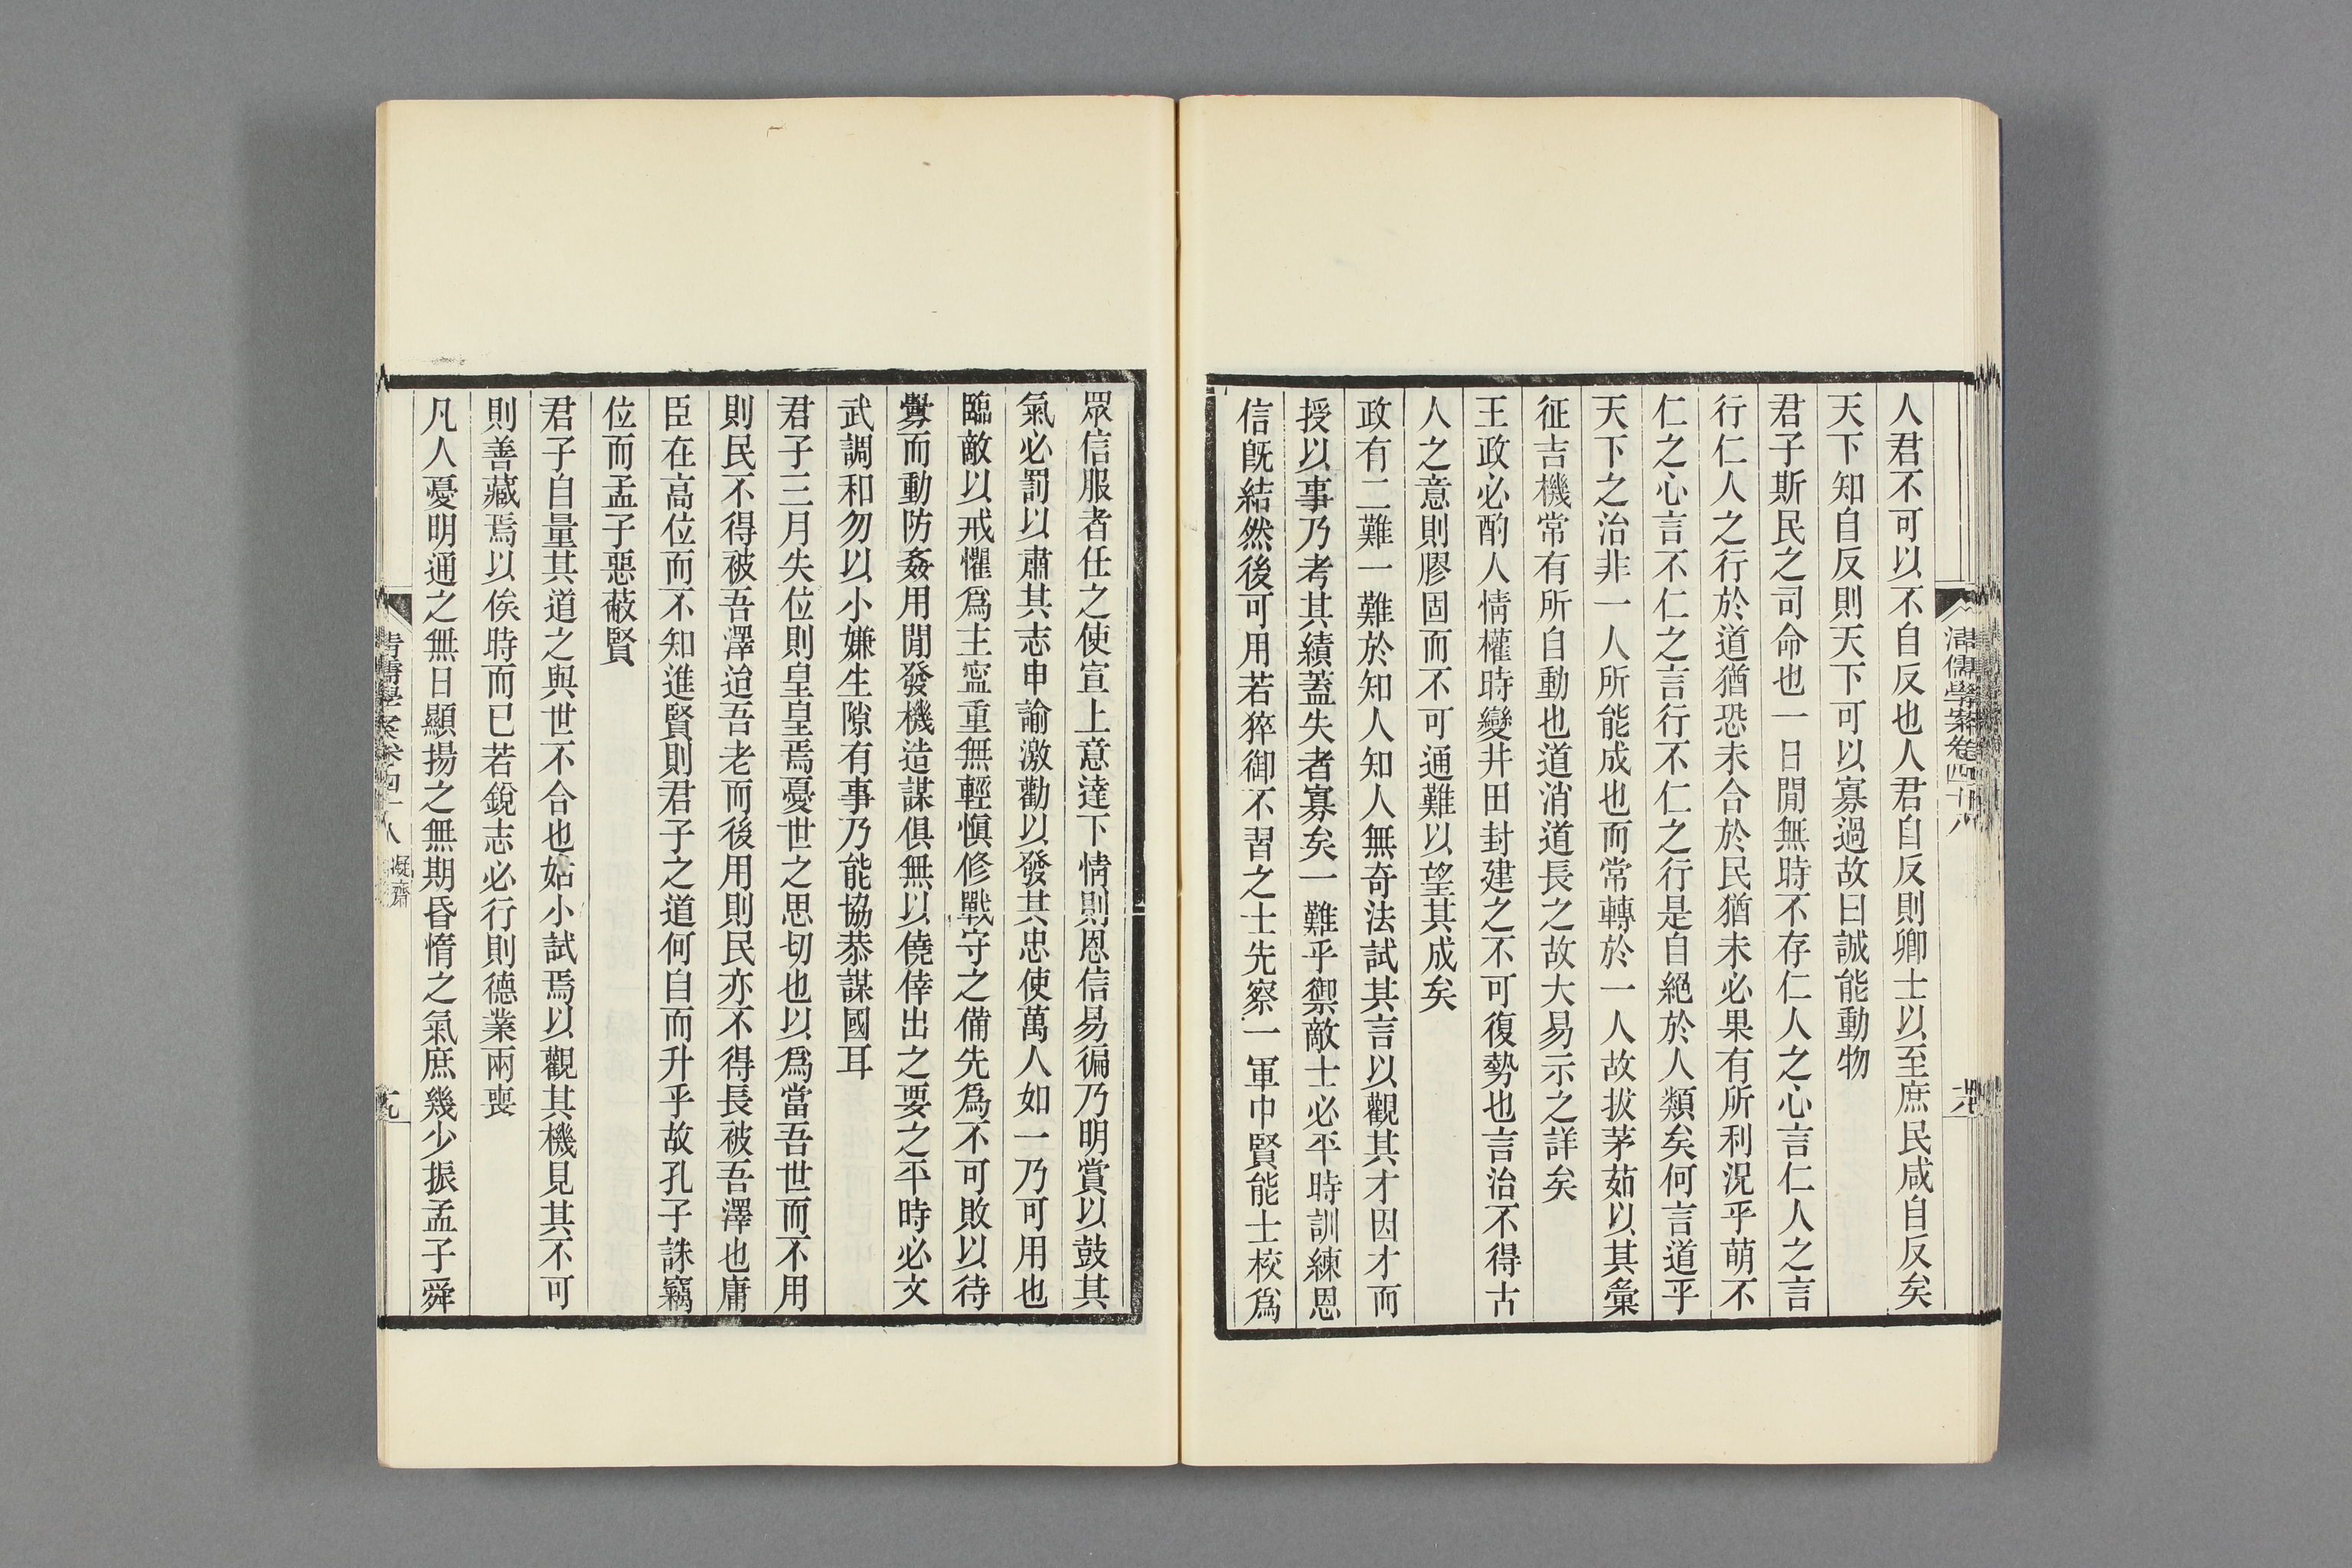 人君不可以不自反也人君自反則卿士以至庶民咸自反矣
天下知自反則天下可以寡過故曰誠能動物
君子斯民之司命也一日閒無時不存仁人之心言仁人之言
行仁人之行於道猶恐未合於民猶未必果有所利況乎萌不
仁之心言不仁之言行不仁之行是自絕於人類矣何言道乎
天下之治非一人所能成也而常轉於一人故拔茅茹以其彙
征吉機常有所自動也道消道長之故大易示之詳矣
王政必酌人情權時變井田封建之不可復勢也言治不得古
人之意則膠固而不可通難以望其成矣
政有二難一難於知人知人無奇法試其言以觀其才因才而
授以事乃考其績蓋失者寡矣一難乎禦敵士必平時訓練恩
信既結然後可用若猝御不習之士先察一軍中賢能士校爲
眾信服者任之使宣上意達下情則恩信易徧乃明賞以鼓其
氣必罰以肅其志申諭激勸以發其忠使萬人如一乃可用也
臨敵以戒懼爲主寍重無輕愼修戰守之備先爲不可敗以待
釁而動防姦用閒發機造謀俱無以僥倖出之要之平時必文
武調和勿以小嫌生隙有事乃能協恭謀國耳
君子三月失位則皇皇焉憂世之思切也以爲當吾世而不用
則民不得被吾澤迨吾老而後用則民亦不得長被吾澤也庸
臣在高位而不知進賢則君子之道何自而升乎故孔子誅竊
位而孟子惡蔽賢
君子自量其道之與世不合也姑小試焉以觀其機見其不可
則善藏焉以俟時而已若銳志必行則德業兩喪
凡人憂明通之無日顯揚之無期昏惰之氣庶幾少振孟子舜
清儒學案卷四十八 凝齋